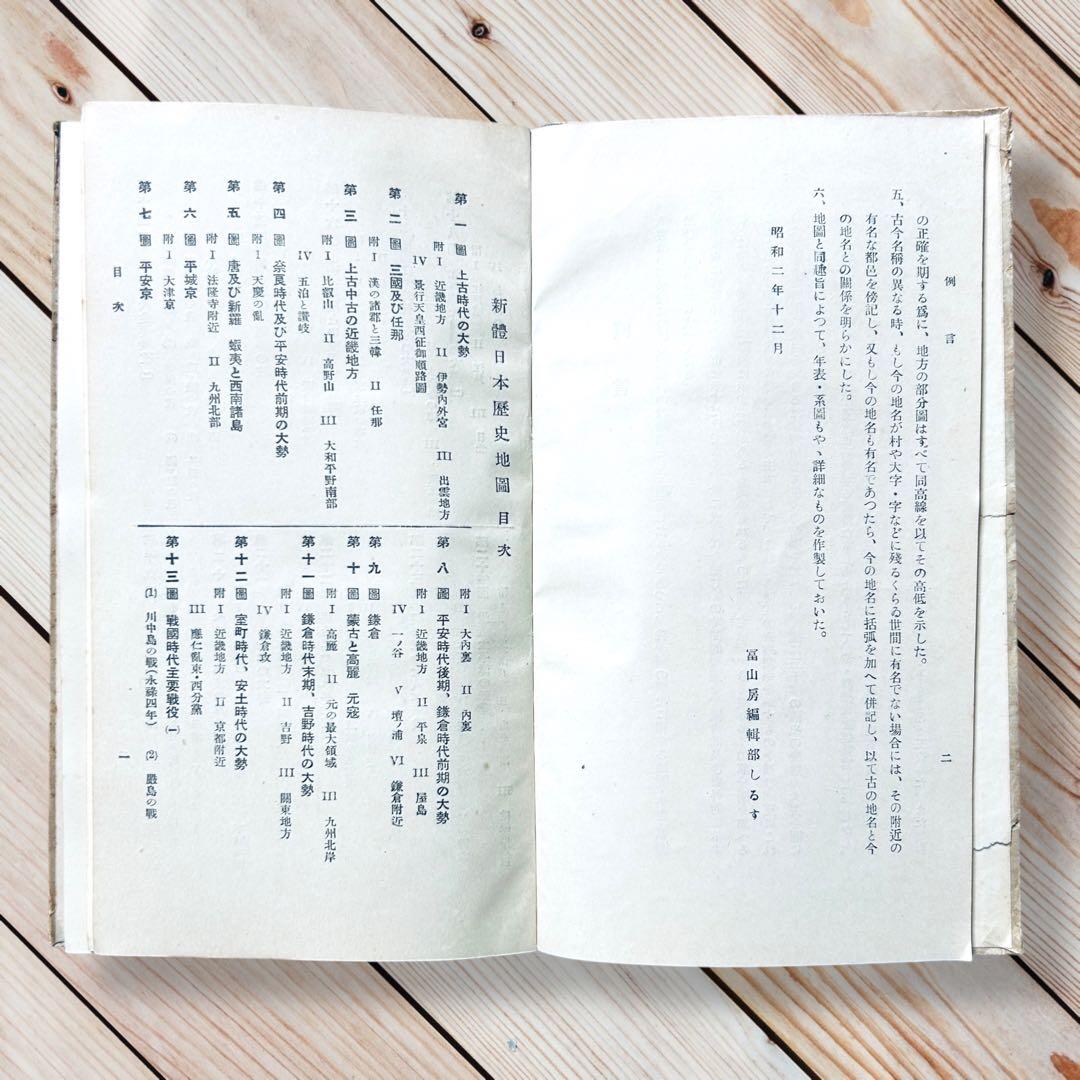 例言
二
の正確を期する爲に、地方の部分圖はすべて同高線を以てその高低を示した。
五、古今名稱の異なる時、もし今の地名が村や大字・字などに殘るくらゐ世間に有名でない場合には、その附近の
有名な都邑を傍記し、又もし今の地名も有名であつたら、今の地名に括弧を加へて併記し、以て古の地名と今
の地名との關係を明らかにした。
六、地圖と同趣旨によつて、年表・系圖もやゝ詳細なものを作製しておいた。
昭和二年十二月
冨山房編輯部しるす
新體日本歷史地圖目次
第一圖 上古時代の大勢
附 I 近畿地方 II 伊勢內外宮 III 出雲地方
IV 景行天皇西征御順路圖
第二圖 三國及び任那
附 I 漢の諸郡と三韓 II 任那
第三圖 上古中古の近畿地方
附 I 比叡山 II 高野山 III 大和平野南部
IV 五泊と讃岐
第四圖 奈良時代及び平安時代前期の大勢
附 I 天慶の亂
第五圖 唐及び新羅 蝦夷と西南諸島
附 I 法隆寺附近 II 九州北部
第六圖 平城京
附 I 大津京
第七圖 平安京
附 I 大內裏 II 內裏
第八圖 平安時代後期、鎌倉時代前期の大勢
附 I 近畿地方 II 平泉 III 屋島
IV 一ノ谷 V 壇ノ浦 VI 鎌倉附近
第九圖 鎌倉
第十圖 蒙古と高麗 元寇
附 I 高麗 II 元の最大領域 III 九州北岸
第十一圖 鎌倉時代末期、吉野時代の大勢
附 I 近畿地方 II 吉野 III 關東地方
IV 鎌倉攻
第十二圖 室町時代、安土時代の大勢
附 I 近畿地方 II 京都附近
III 應仁亂東・西分黨
第十三圖 戰國時代主要戰役(一)
(1) 川中島の戰(永祿四年) (2) 嚴島の戰
目次
一